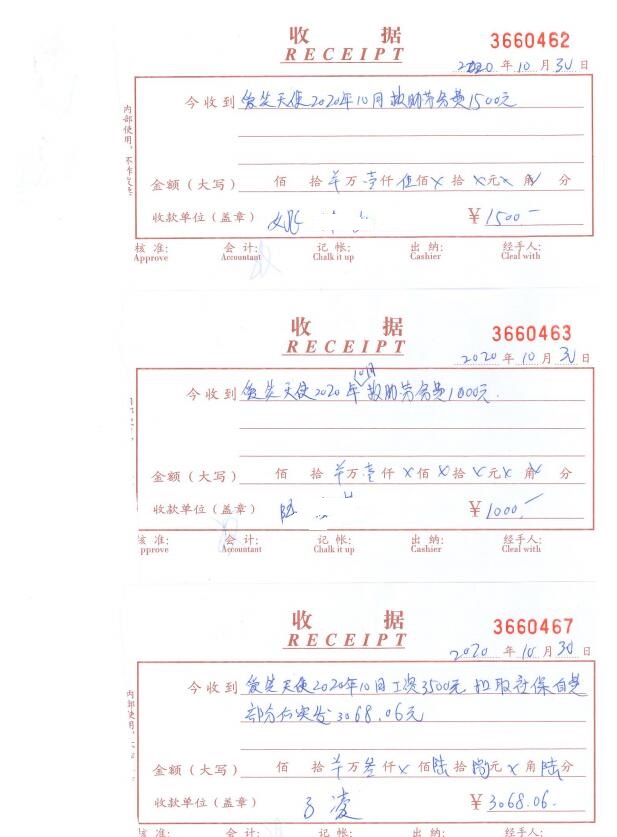 收 据
RECEIPT
3660462
2020 年 10 月 30 日
今收到 爱皆天使2020年10月救助劳务费1500元
金额（大写） 佰 拾 羊 万 壹 仟 伍 佰 X 拾 X 元 X 角 X 分
收款单位（盖章） ￥1500.-
核 准: 会 计: 记 帐: 出 纳: 经手人:
Approve Accountant Chalk it up Cashier Cleal with
内部使用，不作发票
收 据
RECEIPT
3660463
2020 年 10 月 30 日
今收到 爱皆天使2020年10月救助劳务费1000元.
金额（大写） 佰 拾 羊 万 壹 仟 X 佰 X 拾 X 元 X 角 X 分
收款单位（盖章） 陆 ￥1000.-
核 准: 会 计: 记 帐: 出 纳: 经手人:
pprove Accountant Chalk it up Cashier Cleal with
收 据
RECEIPT
3660467
2020 年 10 月 30 日
今收到 爱皆天使2020年10月工资3500元 扣取社保自费
部分后实发3068.06元
金额（大写） 佰 拾 羊 万 叁 仟 X 佰 陆 拾 捌 元 X 角 陆 分
收款单位（盖章） 凌 ￥3068.06.
内部使用
准: 会 计: 记 帐: 出 纳: 经手人: